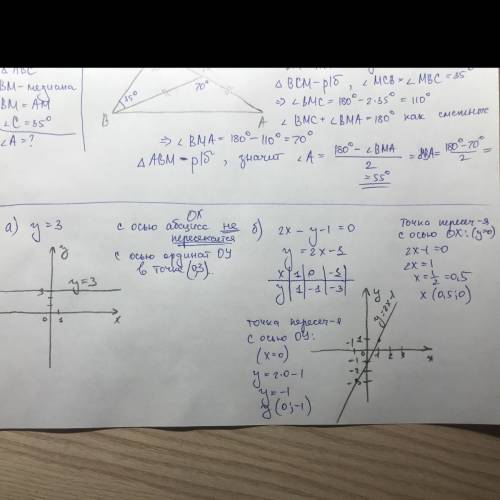 △ ABC
BM - медиана
BM = AM
∠C = 35°
∠A = ?
35°
70°
B
A
△ BCM - р/б, ∠MCB = ∠MBC = 35°
⇒ ∠BMC = 180° - 2·35° = 110°
∠BMC + ∠BMA = 180° как смежные
⇒ ∠BMA = 180° - 110° = 70°
△ABM - р/б, значит ∠A = (180° - ∠BMA)/2 = (180° - 70°)/2 =
= 55°
а) y = 3
OX
с осью абсцисс не
пересекается
с осью ординат OY
в точке (0;3).
y
y = 3
3
0 1
x
б) 2x - y - 1 = 0
y = 2x - 1
x | 1 | 0 | -1
y | 1 | -1 | -3
точка пересеч-я
с осью OY:
(x=0)
y = 2·0 - 1
y = -1
y (0;-1)
точка пересеч-я
с осью OX: (y=0)
2x - 1 = 0
2x = 1
x = 1/2 = 0,5
x (0,5;0)
y
y = 2x-1
-1 1
1 2 3
x
-1
-2
-3